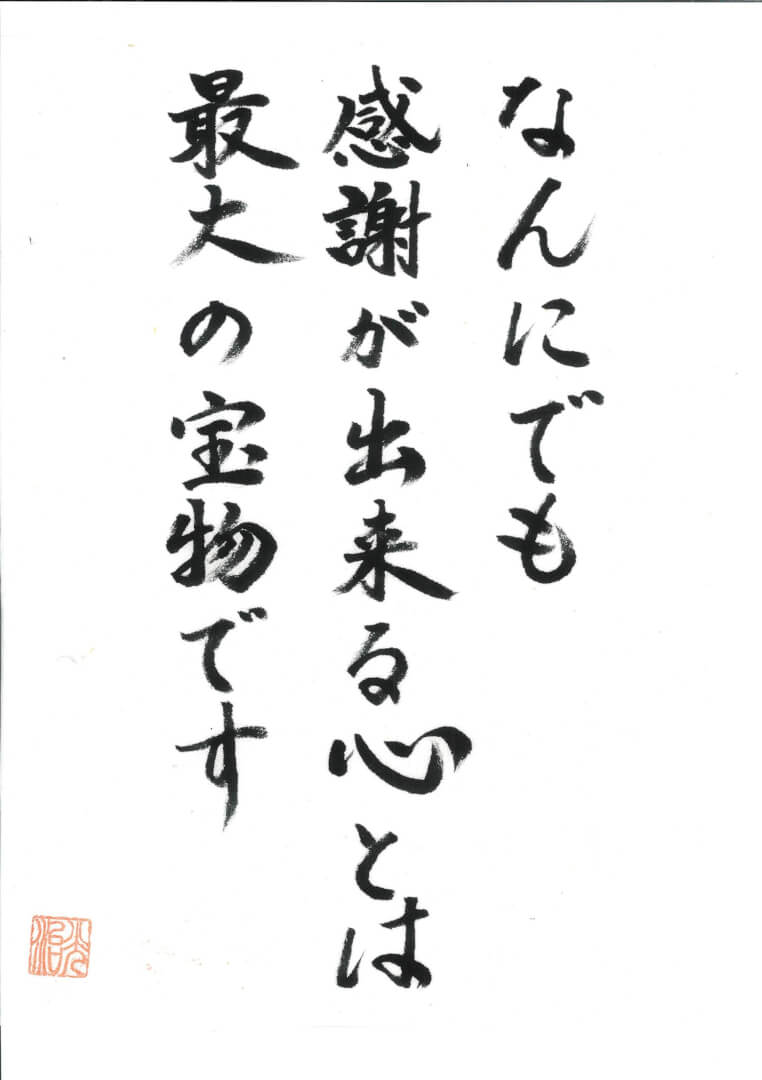 なんにでも
感謝が出来る心とは
最大の宝物です